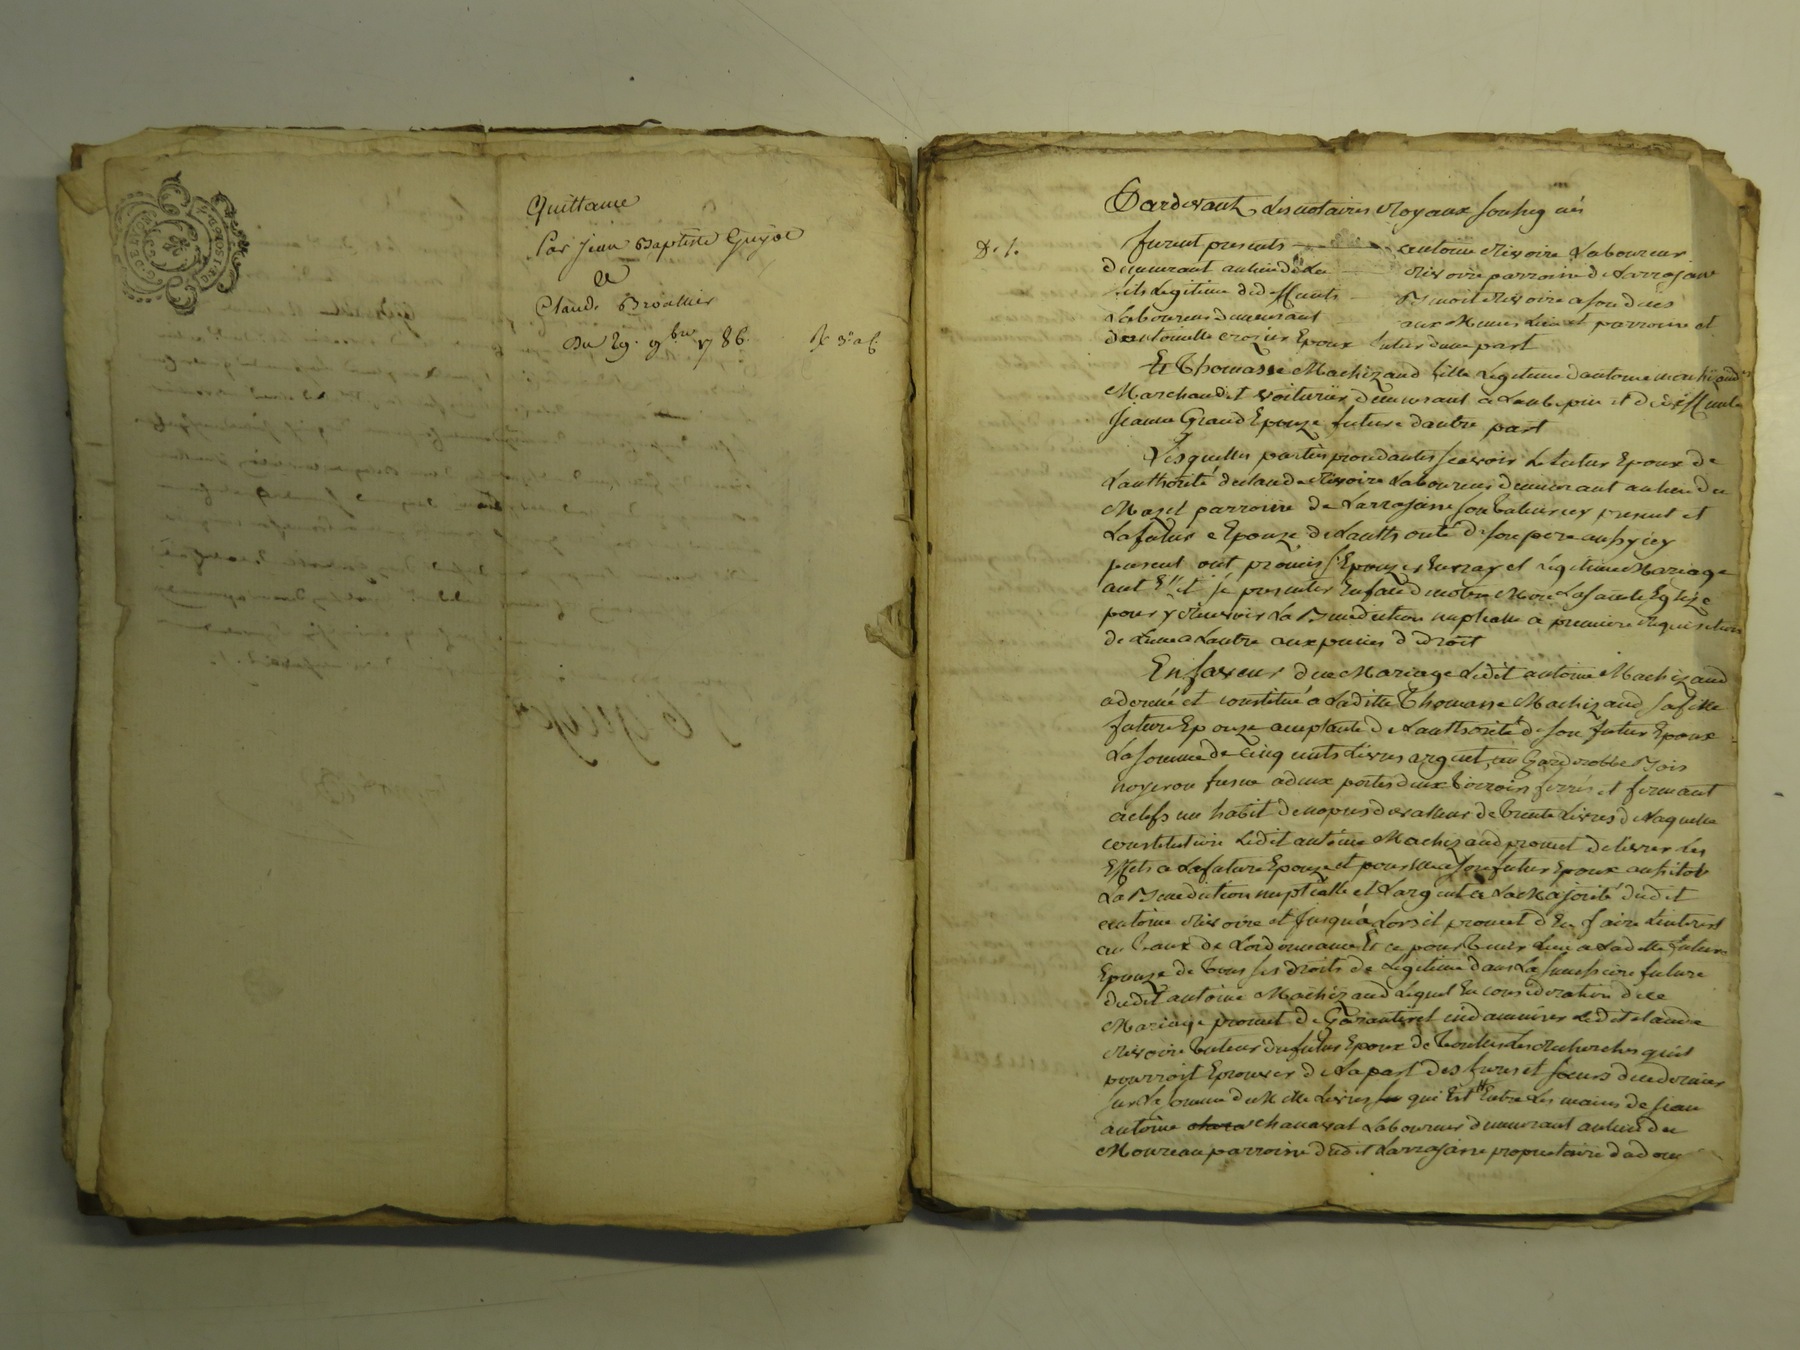 Quittance
Par jean Baptiste Guyot
a
Claude Broallier
Du 29. 9bre 1786.
Pardevant Les notaires Royaux soussignés
furent presents antoine Rivoire Laboureur
demeurant au lieu de La Rivoire parroisse de Larrajasse
fils Legitime de deffunts Benoit Rivoire a son vivant
Laboureur demeurant aux Memes Lieu et parroisse et
d'antoinette crozier Epoux futur d'une part
Et Thomasse Machizaud fille Legitime d'antoine machizaud
Marchand et voiturier demeurant a Laubepin et de deffunte
Jeanne Grand Epouze future d'autre part
Lesquelles parties procedantes scavoir Le futur Epoux de
L'authorité de claude Rivoire Laboureur demeurant au lieu du
Mazel parroisse de Larrajasse son tuteur icy present et
La future Epouze de L'authorité de son pere aussy icy
present ont promis s'Epouzer En vray et Légitime Mariage
et se presenter En face de notre Mere La sainte Eglize
pour y Recevoir La Benediction nuptialle a premiere Requisition
de L'une a L'autre aux peines de droit
En faveur de ce Mariage Ledit antoine Machizaud
a donné et constitué a Laditte Thomasse Machizaud sa fille
future Epouze acceptante de L'authorité de son futur Epoux
La somme de cinq cents Livres argent, un Garderobbe Bois
noyer ou fresne a deux portes deux tirroirs ferrés et fermant
a clefs un habit de nopces de valleur de trente Livres de Laquelle
constitution Ledit antoine Machizaud promet delivrer Les
Effets a La future Epouze et pour Elle a son futur Epoux aussitot
La Benediction nuptialle et L'argent a La Majorité dudit
antoine Rivoire et jusqu'a Lors il promet d'En faire L'interest
au taux de L'ordonnance Et ce pour tenir Lieu a Laditte future
Epouze de tous ses droits de Legitime dans La succession future
dudit antoine Machizaud Lequel En consideration de ce
Mariage promet de Garantir et indamniser Ledit claude
Rivoire tuteur du futur Epoux de toutes Les Recherches qu'il
pourroit Eprouver de La part des freres et soeurs de ce dernier
sur La somme de Mille Livres qui Est Entre Les mains de jean
antoine chanavat Laboureur demeurant au lieu du
Moureau parroisse dudit Larrajasse proprietaire